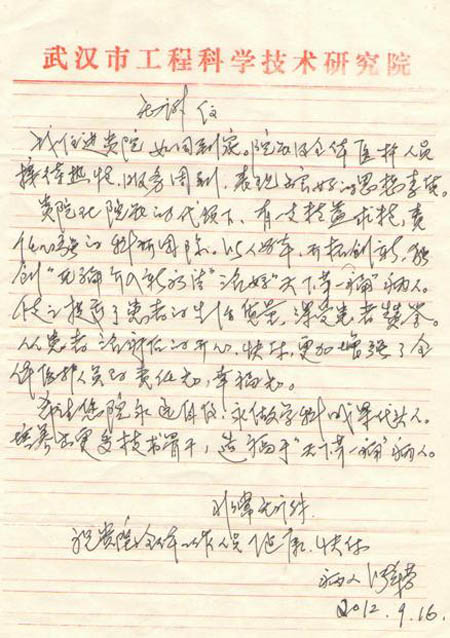 武汉市工程科学技术研究院
感谢信
我住进贵院如同到家。院领及全体医护人员
接待热情,服务周到,表现出良好的思想素质。
贵院在院领的带领下,有一支精益求精,责
任心强的科研团队。以人为本,开拓创新,独
创“
”治好“天下第一痛”病人。
使之提高了患者的生活质量,深受患者赞誉。
从患者治疗后的开心、快乐,更加增强了全
体医护人员的责任感,幸福感。
您院永远
永做学科
带头人。
培养出更多技术骨干,造福于“天下第一痛”病人。
非常感谢
祝贵院全体工作人员健康、快乐
病人
2012.9.16.